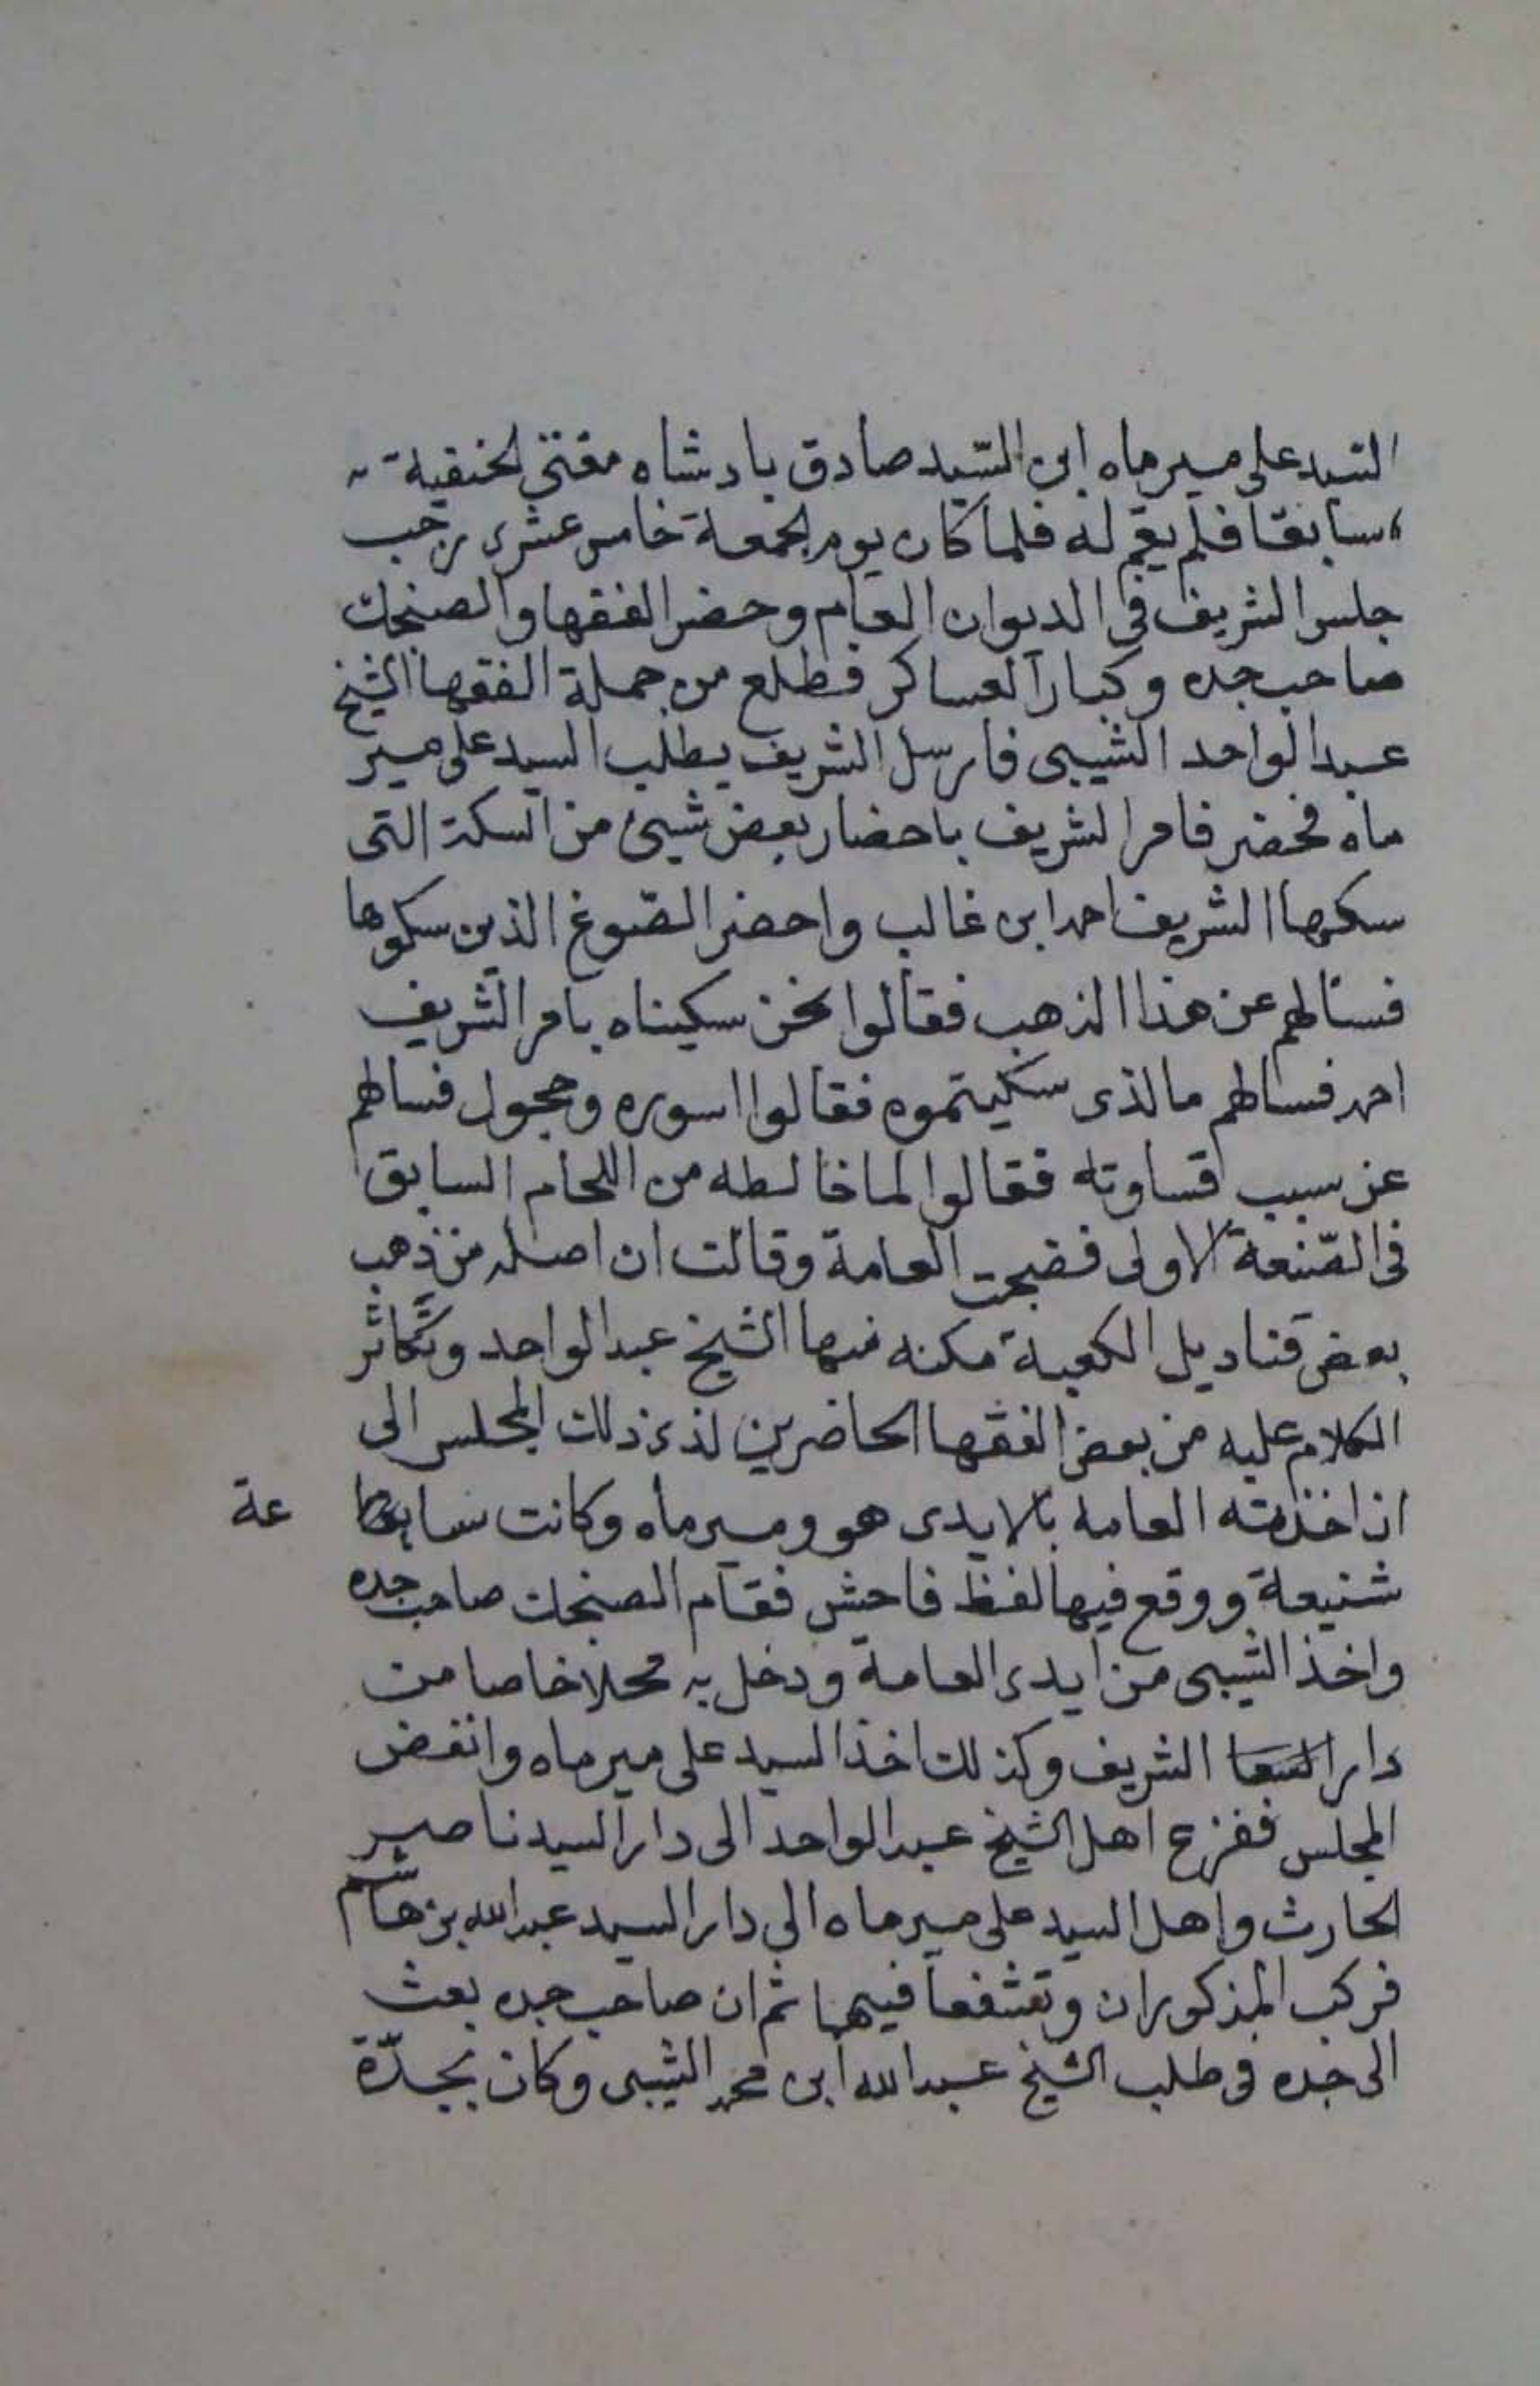 السيد على ميرماه ابن السّيد صادق بادشاه مفتى الحنفية
سابقا فلم يقم له فلما كان يوم الجمعة خامس عشرى رجب
جلس الشريف فى الديوان العام وحضر الفقها والصنجك
صاحب جده وكبار العساكر فطلع من جملة الفقها الشيخ
عبد الواحد الشيبى فارسل الشريف يطلب السيد على مير
ماه فحضر فامر الشريف باحضار بعض شيئ من السكة التى
سكها الشريف احمد ابن غالب واحضر الصّوغ الذين سكوها
فسالهم عن هذا الذهب فقالوا نحن سكيناه بامر الشريف
احمد فسالهم مالذى سكيتموه فقالوا اسوره وحجول فسالهم
عن سبب قساوته فقالوا لما خالطه من اللحام السابق
فى الصّنعة الاولى فضجت العامة وقالت ان اصله من ذهب
بعض قناديل الكعبة مكنه منها الشيخ عبد الواحد وتكاثر
الكلام عليه من بعض الفقها الحاضرين لذى ذلك المجلس الى
ان اخذته العامه بالايدى هو وميرماه وكانت سا عة
شنيعة ووقع فيها لفظ فاحش فقام الصنجك صاحب جده
واخذ الشيبى من ايدى العامة ودخل به محلا خاصا من
دار الشريف وكذلك اخذ السيد على ميرماه وانفض
المجلس ففزع اهل الشيخ عبد الواحد الى دار السيد ناصر
الحارث واهل السيد على ميرماه الى دار السيد عبد الله بن هاشم
فركب المذكوران وتشفعا فيهما ثم ان صاحب جده بعث
الى جده فى طلب الشيخ عبد الله ابن محمد الشيبى وكان بجدّة